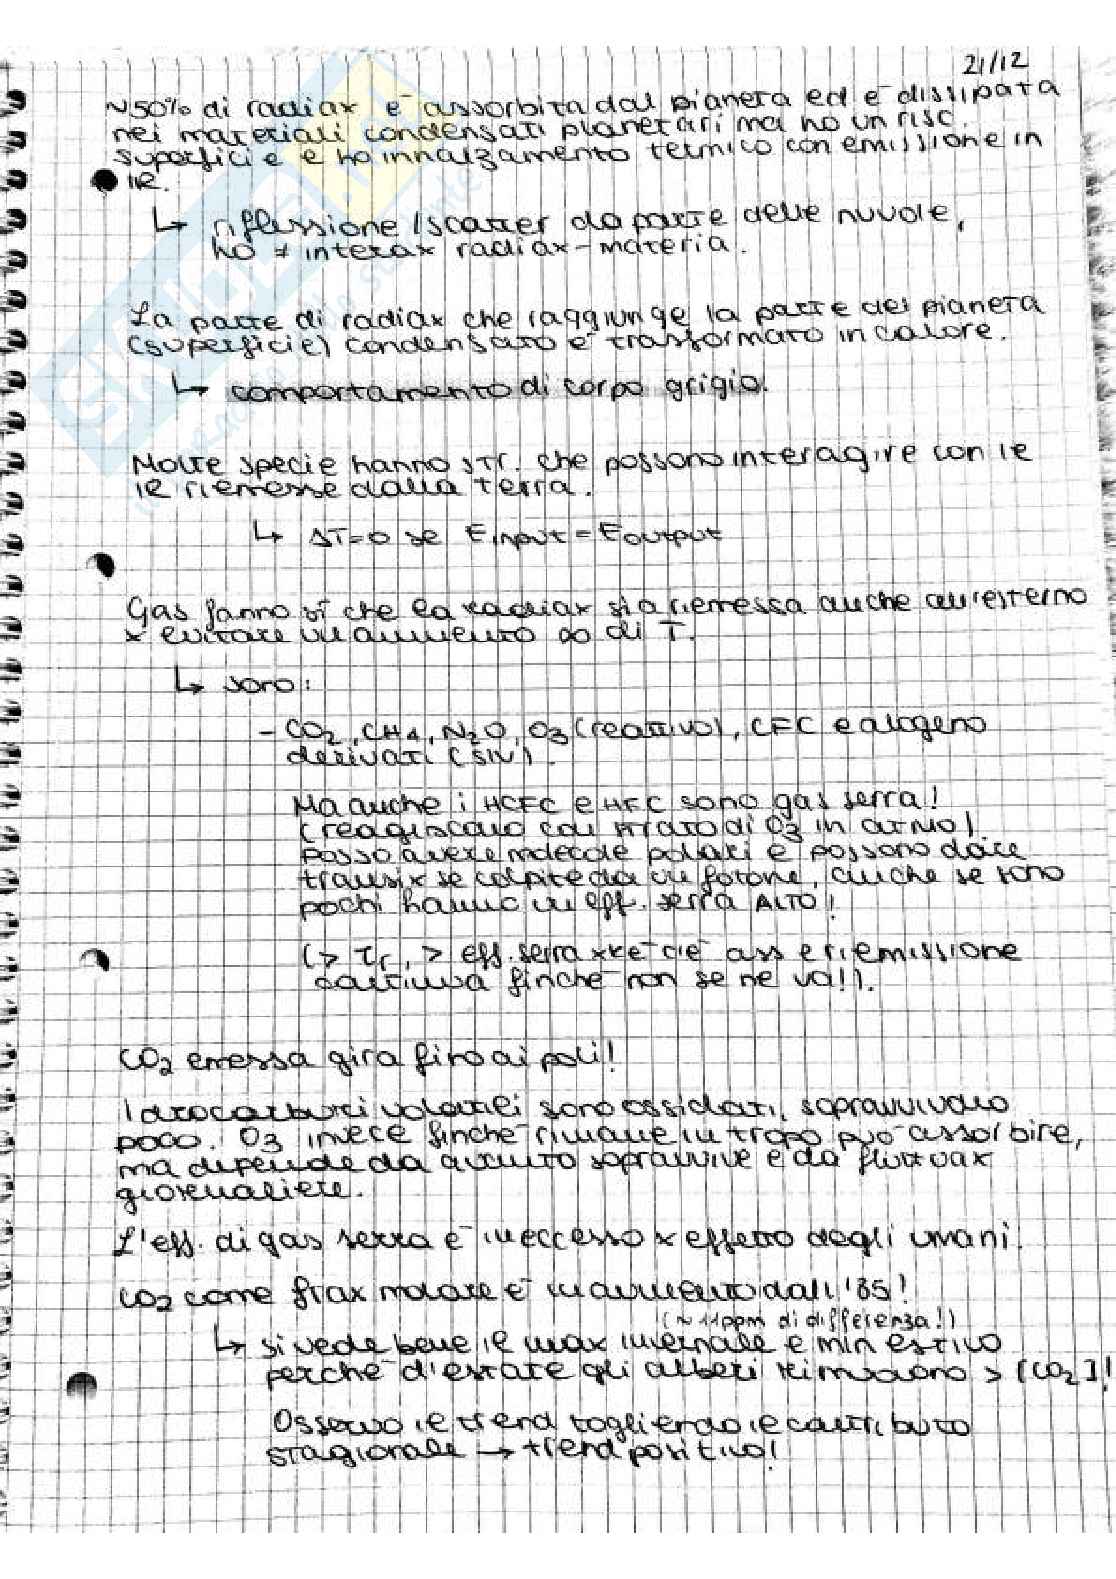 21/12
~50% di radiax è assorbita dal pianeta ed è dissipata
nei materiali condensati planetari ma ho un risc.
superficie e ho innalzamento termico con emissione in
IR.
↳ riflessione/scatter da parte delle nuvole,
ho ≠ interax radiax-materia.
La parte di radiax che raggiunge la parte del pianeta
(superficie) condensato è trasformato in calore.
↳ comportamento di corpo grigio.
Molte specie hanno str. che possono interagire con le
IR riemesse dalla terra.
↳ ΔT=0 se Einput = Eoutput
Gas fanno sì che la radiax sia riemessa anche all'esterno
x evitare un aumento ∞ di T.
↳ sono:
- CO2, CH4, N2O, O3 (reattivo), CFC e alogeno
derivati (SIN).
Ma anche i HCFC e HFC sono gas serra!
(reagiscono con strato di O3 in atmo).
Posso avere molecole polari e possono dare
transix se colpite da un fotone, anche se sono
pochi hanno un eff. serra ALTO!
(> τr, > eff. serra xkè c'è ass e riemissione
continua finchè non se ne va!).
CO2 emessa gira fino ai poli!
Idrocarburi volatili sono ossidati, sopravvivono
poco. O3 invece finchè rimane in tropo può assorbire,
ma dipende da quanto sopravvive e da fluttuax
giornaliere.
L'eff. di gas serra è in eccesso x effetto degli umani.
CO2 come frax molare è in aumento dall'85!
(~11ppm di differenza!)
↳ si vede bene il max invernale e min estivo
perchè d'estate gli alberi rimuovono > [CO2]!
Osservo il trend togliendo il contributo
stagionale → trend positivo!